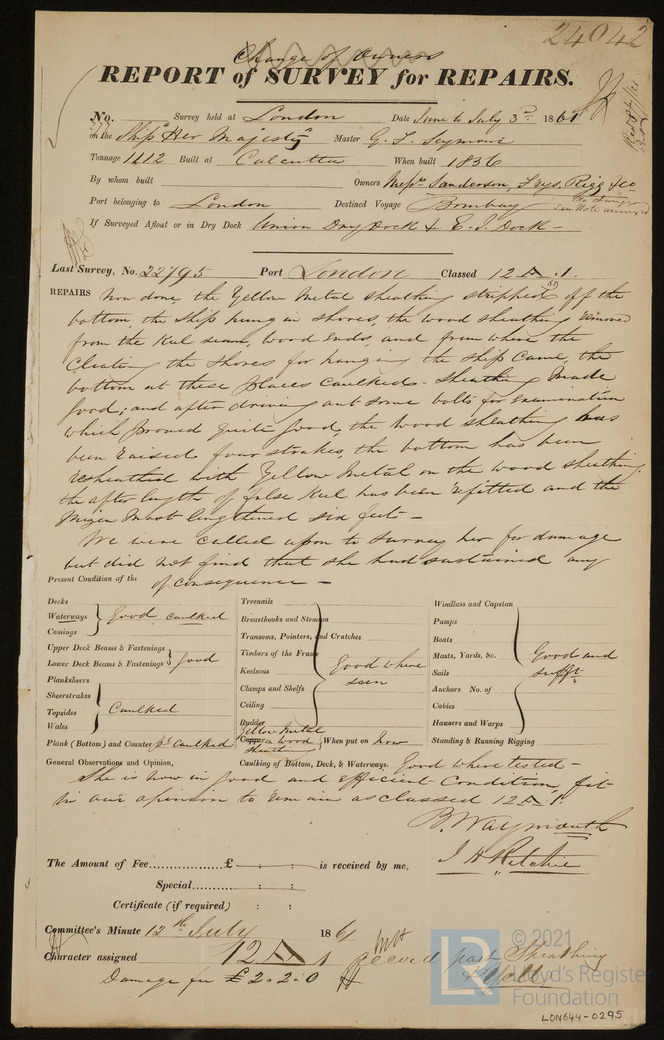 24042
Change of Owners
REPORT of SURVEY for REPAIRS.
No. Survey held at London Date June to July 3rd 1861
on the Ship Her Majesty Master G. L. Seymour
Tonnage 1112 Built at Calcutta When built 1836
By whom built Owners Messrs Sanderson, Frys, Rigg & Co
Port belonging to London Destined Voyage Bombay
If Surveyed Afloat or in Dry Dock Union Dry Dock & E. I. Dock
Last Survey, No. 22795 Port London Classed 12 A .1.
REPAIRS Now done, the Yellow Metal sheathing stripped off the
bottom, the Ship hung in shores, the wood sheathing removed
from the Keel seam, wood Ends, and from where the
Cleating the shores for hanging the ship came, the
bottom at these places caulked - Sheathing made
good; and after driving out some bolts for examination
which proved quite good, the wood sheathing has
been raised four strakes, the bottom has been
resheathed with Yellow Metal on the wood sheathing,
the after length of false Keel has been refitted and the
Mizen Mast lengthened six feet -
We were called upon to survey her for damage
but did not find that she had sustained any
of consequence -
Present Condition of the
Decks
Waterways
Comings
Good caulked
Upper Deck Beams & Fastenings
Lower Deck Beams & Fastenings
good
Planksheers
Sheerstrakes
Topsides
Wales
Caulked
Plank (Bottom) and Counter pt caulked
Treenails
Breasthooks and Stemson
Transoms, Pointers, and Crutches
Timbers of the Frame
Keelsons
Clamps and Shelfs
Ceiling
Rudder
Good where
seen
Yellow Metal
Copper on wood
sheathing
When put on Now
Caulking of Bottom, Deck, & Waterways. Good where tested -
Windlass and Capstan
Pumps
Boats
Masts, Yards, &c.
Sails
Anchors No. of
Cables
Hawsers and Warps
Good and
sufft
Standing & Running Rigging
General Observations and Opinion,
She is now in good and efficient Condition, fit
in our opinion to remain as classed 12 A .1.
B. Waymouth
J. H. Ritchie
The Amount of Fee £ : : is received by me,
Special : :
Certificate (if required) : :
Committee's Minute 12th July 1861
Character assigned 12 A 1
Damage fee £2.2.0
© 2021
LR
Lloyd's Register
Foundation
LDN644-0295